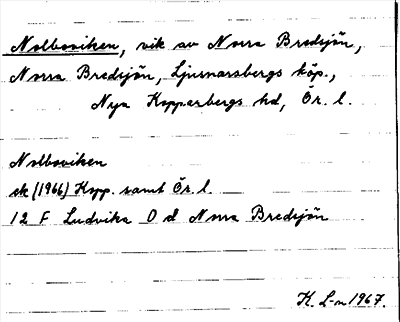 Nolboviken, vik av Norra Bredsjön,
Norra Bredsjön, Ljusnarsbergs köp.,
Nya Kopparbergs hd, Ör. l.
Nolboviken
ek (1966) Kopp. samt Ör. l.
12 F Ludvika O d Norra Bredsjön
K. L-m 1967.